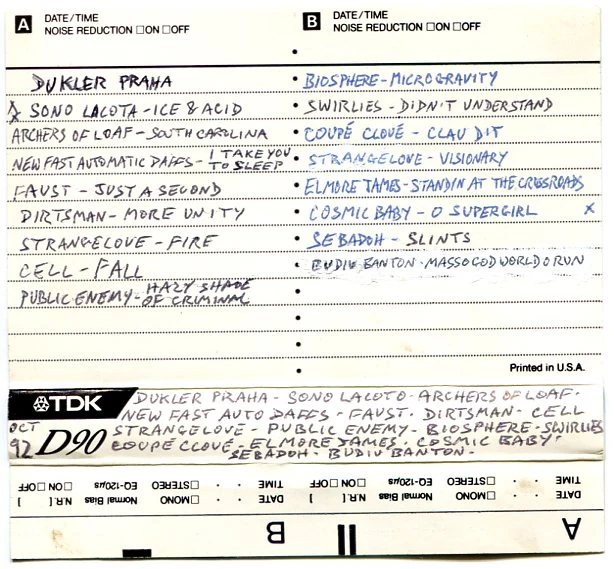 A DATE/TIME
NOISE REDUCTION □ON □OFF
B DATE/TIME
NOISE REDUCTION □ON □OFF
DUKLER PRAHA
SONO LACOTA - ICE & ACID
ARCHERS OF LOAF - SOUTH CAROLINA
NEW FAST AUTOMATIC DAFFS - I TAKE YOU TO SLEEP
FAUST - JUST A SECOND
DIRTSMAN - MORE UNITY
STRANGELOVE - FIRE
CELL - FALL
PUBLIC ENEMY - HAZY SHADE OF CRIMINAL
• BIOSPHERE - MICROGRAVITY
• SWIRLIES - DIDN'T UNDERSTAND
• COUPÉ CLOUÉ - CLAU DIT
• STRANGELOVE - VISIONARY
• ELMORE JAMES - STANDIN AT THE CROSSROADS
• COSMIC BABY - O SUPERGIRL X
• SEBADOH - SLINTS
• BUDIU BANTON - MASSOGODWORLDORUN
Printed in U.S.A.
TDK
OCT 92 D90
DUKLER PRAHA - SONO LACOTO - ARCHERS OF LOAF -
NEW FAST AUTO DAFFS - FAUST - DIRTSMAN - CELL
STRANGELOVE - PUBLIC ENEMY - BIOSPHERE - SWIRLIES
COUPÉ CLOUÉ - ELMORE JAMES - COSMIC BABY -
SEBADOH - BUDIU BANTON -
A
DATE TIME
N.R. [ ] □ON □OFF
Normal Bias EQ-120µs
□MONO □STEREO
B
DATE TIME
N.R. [ ] □ON □OFF
Normal Bias EQ-120µs
□MONO □STEREO